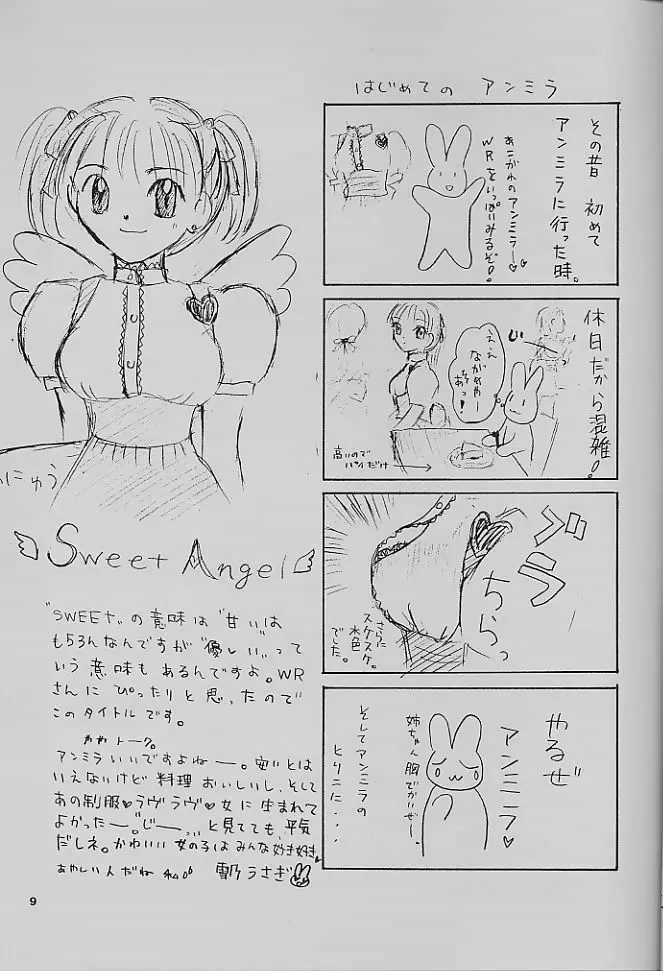 はじめての アンミラ
その昔 初めて
アンミラに行った時。
あこがれのアンミラー♡♡
WRをいっぱいみるぞ!
休日だから混雑!
じー
ええ
ながめやー
あっ!
高いので
パイだけ
ブラ
ちらっ
さらに
スケスケ。
水色
でした。
やるぜ
アンミラ♡
姉ちゃん胸でかいぜー。
そしてアンミラの
とりこに・・・
にゅう
Sweet Angel
"SWEET"の意味は"甘い"は
もちろんなんですが"優しい"って
いう意味もあるんですよ。WR
さんにぴったりと思ったので
このタイトルです。
トーク。
アンミラいいですよねー。安いとは
いえないけど料理おいしいし、そして
あの制服♡ラヴラヴ♡女に生まれて
よかったー。じーっ...と見てても、平気
だしネ。かわいい女の子はみんな好き好き♥
あやしい人だね 私。
雪乃うさぎ
9